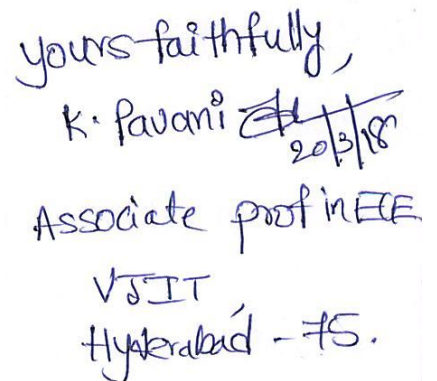 yours faithfully,
K. Pavani
20/3/18
Associate prof in ECE
VJIT,
Hyderabad - 75.